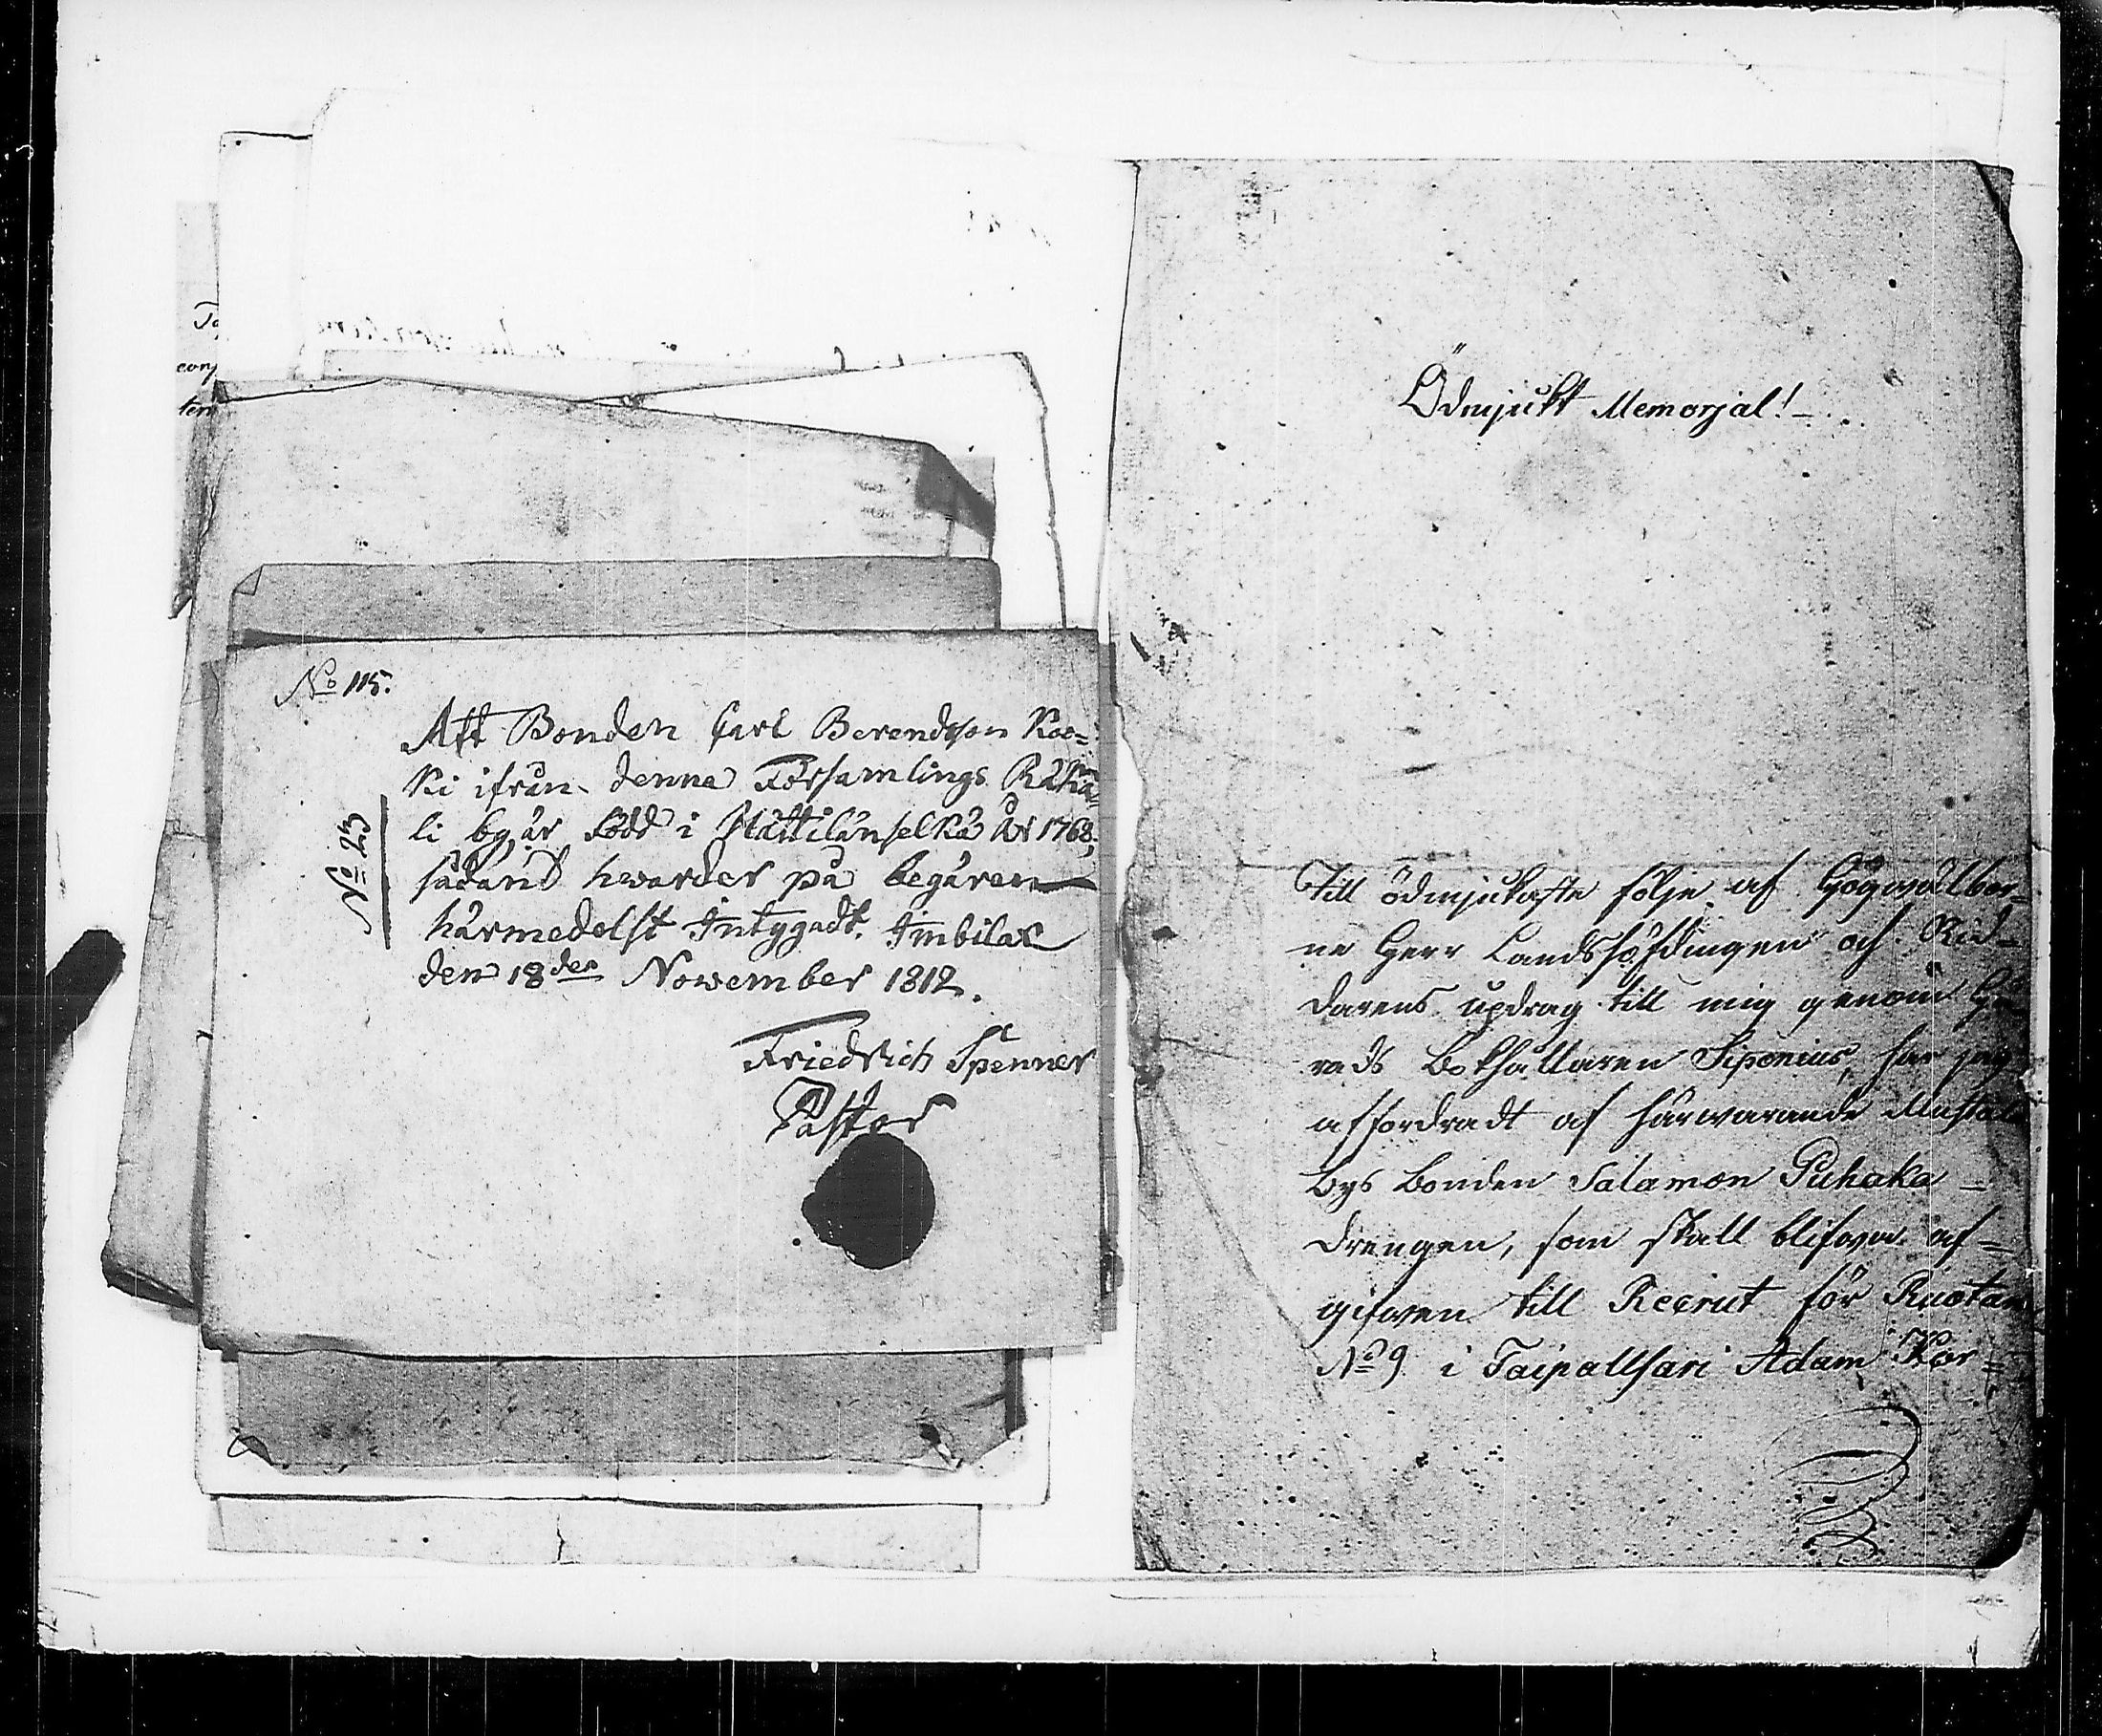 No 115.
Att Bonden Carl Berendtson Koo=
ki ifrån denna Församlings Räkä=
li by, är född i Mattilänselkä år 1768,
sådant hwarder på begäran
härmedelst Intygadt. Imbilax
den 18den November 1812.
Friedrich Spenner
Pastor
No 23
Ödmjukt Memorjal!
Till ödmjukaste följe af Högwälbor=
ne Herr Landshöfdingen och Rid=
darens updrag till mig genom Hä=
rads Bokhållaren Siponius, har jag
affordradt af härwarande Mustala
Bys Bonden Salamon Puhaka
drengen, som skall blifwa af=
gifwen till Recrut för Ruotan
No 9 i Taipallsari Adam Kor=